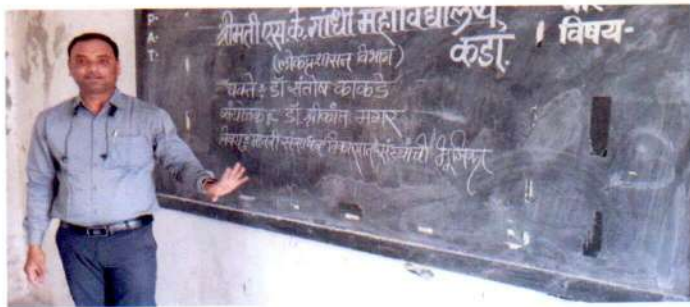 P-
A-
T-
श्रीमती एस.के. गांधी महाविद्यालय
कडा.
(लोकप्रशासन विभाग)
वक्ते : डॉ संतोष काकडे
डॉ. श्रीकांत मगर
विकासात संस्थांची भूमिका
विषय-